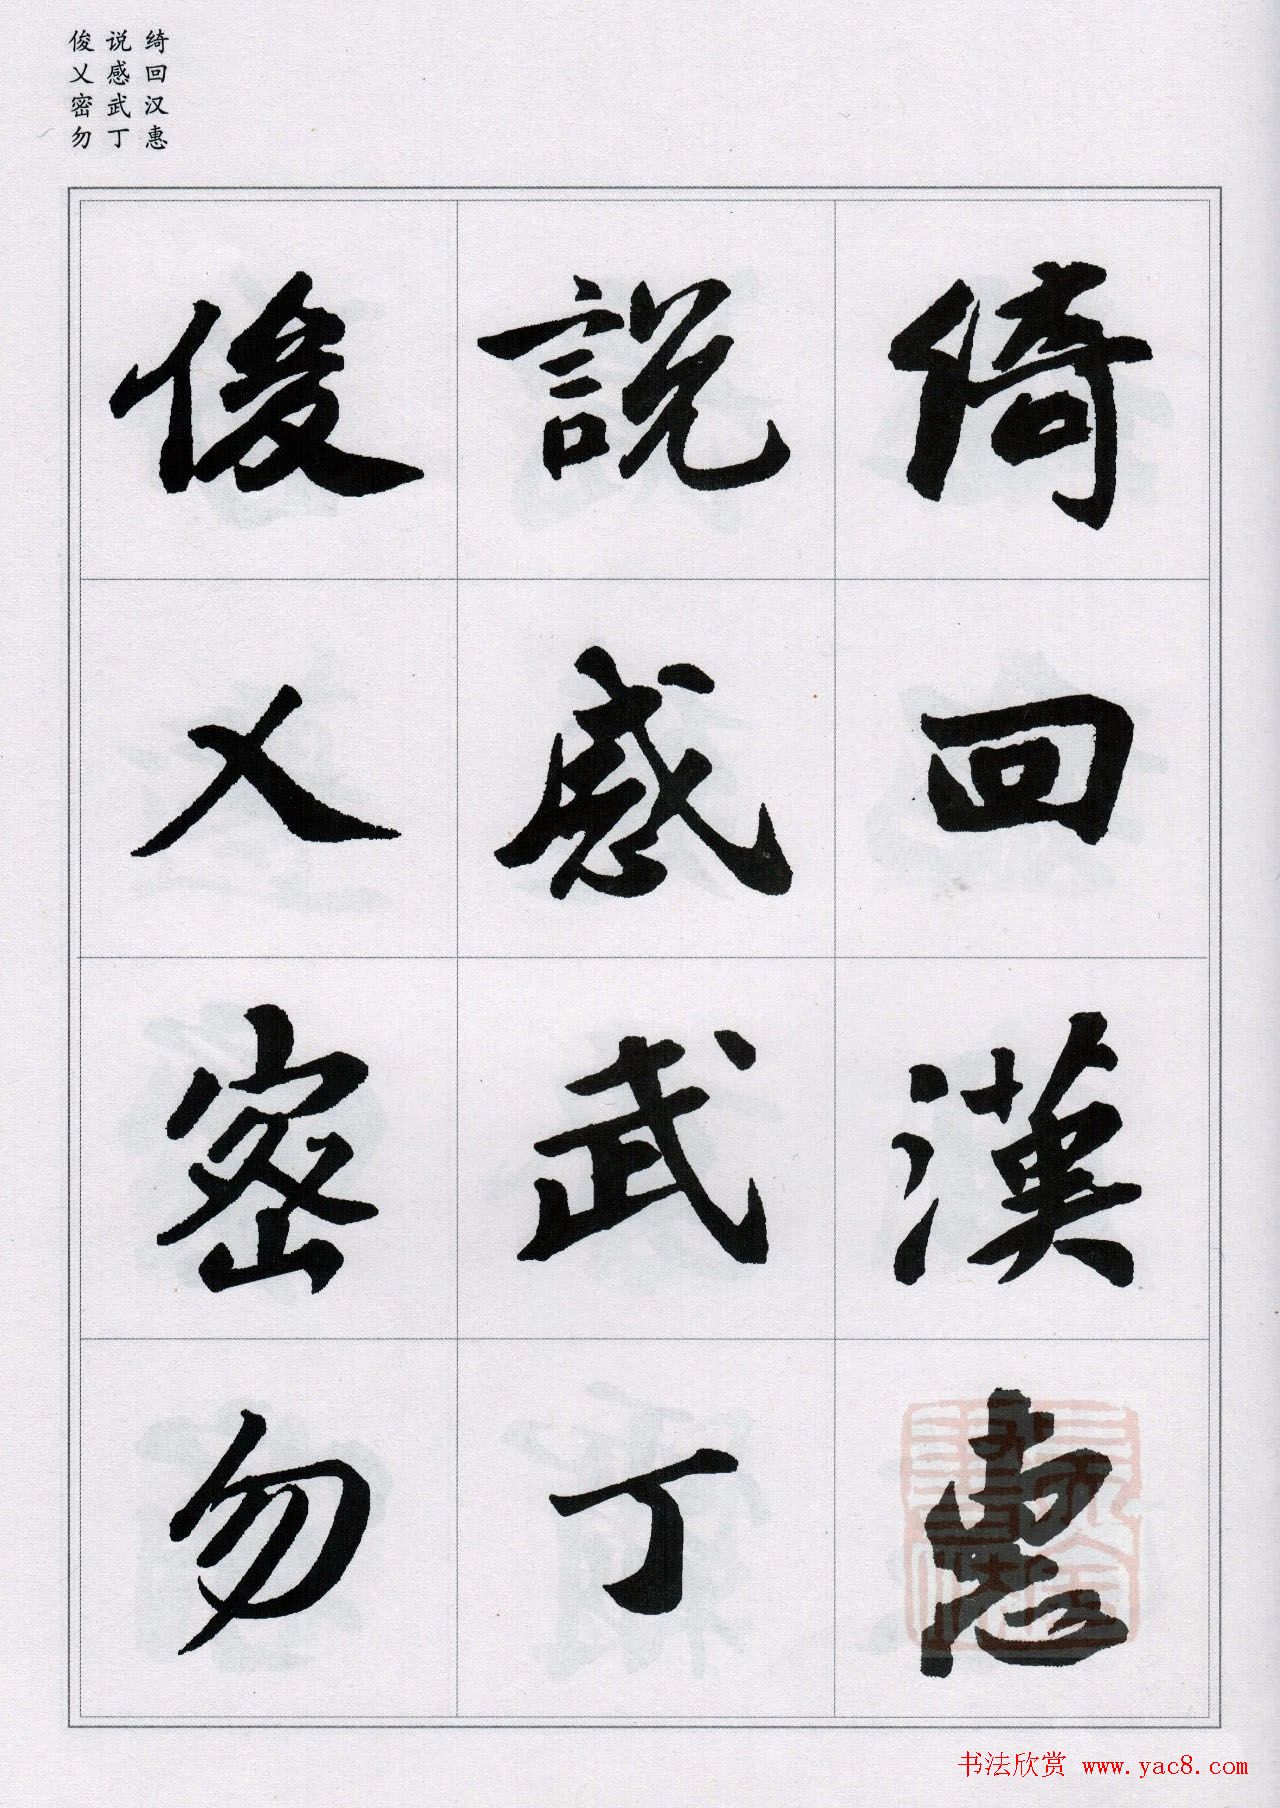 绮回汉惠
说感武丁
俊乂密勿
綺回漢惠
說感武丁
俊乂密勿
书法欣赏 www.yac8.com